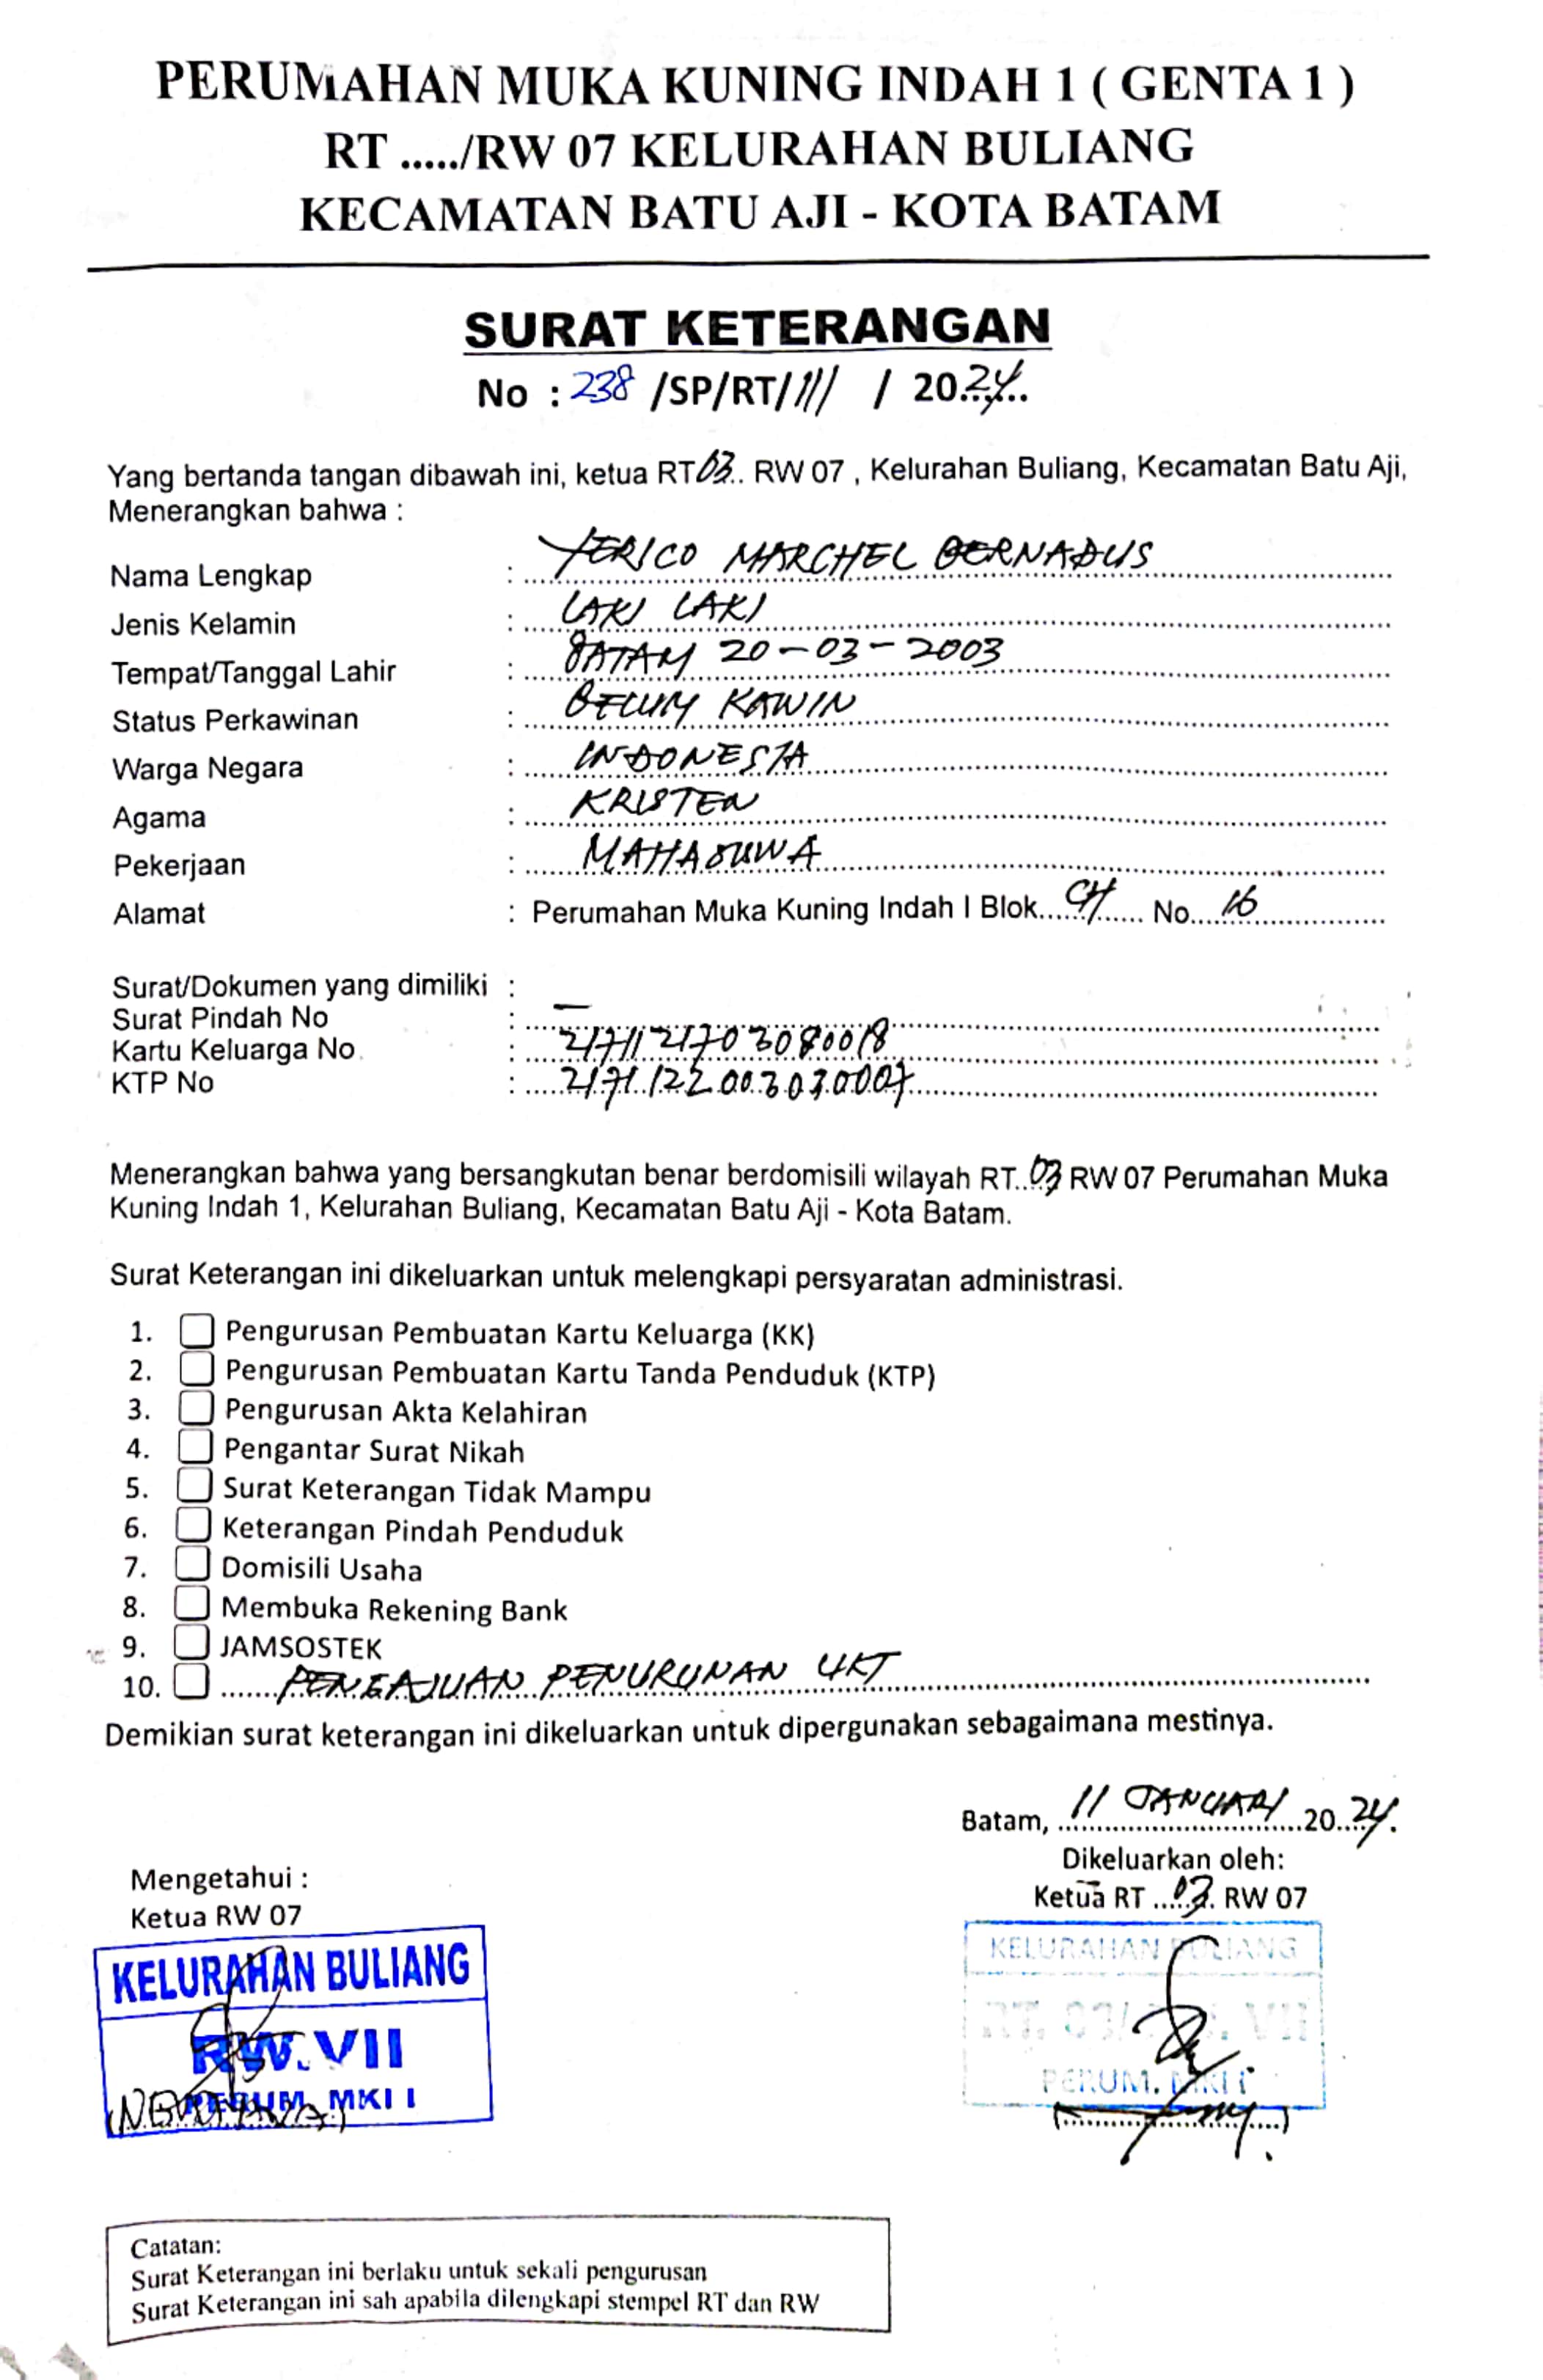 PERUMAHAN MUKA KUNING INDAH 1 ( GENTA 1 )
RT ...../RW 07 KELURAHAN BULIANG
KECAMATAN BATU AJI - KOTA BATAM
SURAT KETERANGAN
No : 238 /SP/RT/III / 2024
Yang bertanda tangan dibawah ini, ketua RT 03 RW 07 , Kelurahan Buliang, Kecamatan Batu Aji,
Menerangkan bahwa :
Nama Lengkap : YERICO MARCHEL BERNADUS
Jenis Kelamin : LAKI LAKI
Tempat/Tanggal Lahir : BATAM 20-03-2003
Status Perkawinan : BELUM KAWIN
Warga Negara : INDONESIA
Agama : KRISTEN
Pekerjaan : MAHASISWA
Alamat : Perumahan Muka Kuning Indah I Blok CH No 16
Surat/Dokumen yang dimiliki :
Surat Pindah No : —
Kartu Keluarga No : 2171121703080018
KTP No : 2171122003030007
Menerangkan bahwa yang bersangkutan benar berdomisili wilayah RT 03 RW 07 Perumahan Muka
Kuning Indah 1, Kelurahan Buliang, Kecamatan Batu Aji - Kota Batam.
Surat Keterangan ini dikeluarkan untuk melengkapi persyaratan administrasi.
1. Pengurusan Pembuatan Kartu Keluarga (KK)
2. Pengurusan Pembuatan Kartu Tanda Penduduk (KTP)
3. Pengurusan Akta Kelahiran
4. Pengantar Surat Nikah
5. Surat Keterangan Tidak Mampu
6. Keterangan Pindah Penduduk
7. Domisili Usaha
8. Membuka Rekening Bank
9. JAMSOSTEK
10. PENGAJUAN PENURUNAN UKT
Demikian surat keterangan ini dikeluarkan untuk dipergunakan sebagaimana mestinya.
Batam, 11 JANUARI 2024.
Dikeluarkan oleh:
Ketua RT 03 RW 07
Mengetahui :
Ketua RW 07
KELURAHAN BULIANG
RW. VII
PERUM. MKI I
KELURAHAN BULIANG
RT. 03/RW. VII
PERUM. MKI I
Catatan:
Surat Keterangan ini berlaku untuk sekali pengurusan
Surat Keterangan ini sah apabila dilengkapi stempel RT dan RW